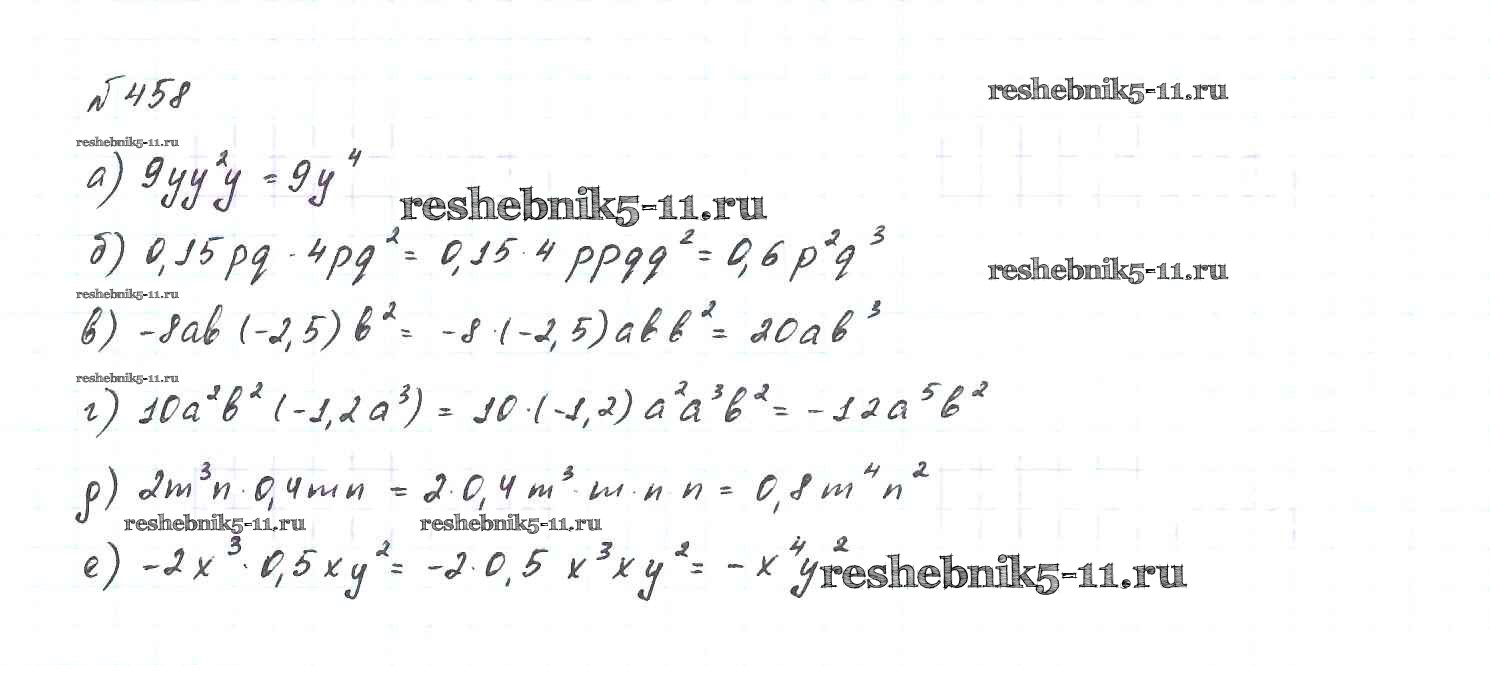 № 458
reshebnik5-11.ru
reshebnik5-11.ru
а) 9yy²y = 9y⁴
reshebnik5-11.ru
б) 0,15pq · 4pq² = 0,15 · 4 ppqq² = 0,6 p²q³
reshebnik5-11.ru
reshebnik5-11.ru
в) -8ab (-2,5) b² = -8 · (-2,5) abb² = 20ab³
reshebnik5-11.ru
г) 10a²b² (-1,2a³) = 10 · (-1,2) a²a³b² = -12a⁵b²
д) 2m³n · 0,4mn = 2 · 0,4 m³ · m · n · n = 0,8 m⁴n²
reshebnik5-11.ru reshebnik5-11.ru
е) -2x³ · 0,5xy² = -2 · 0,5 x³xy² = -x⁴y²
reshebnik5-11.ru